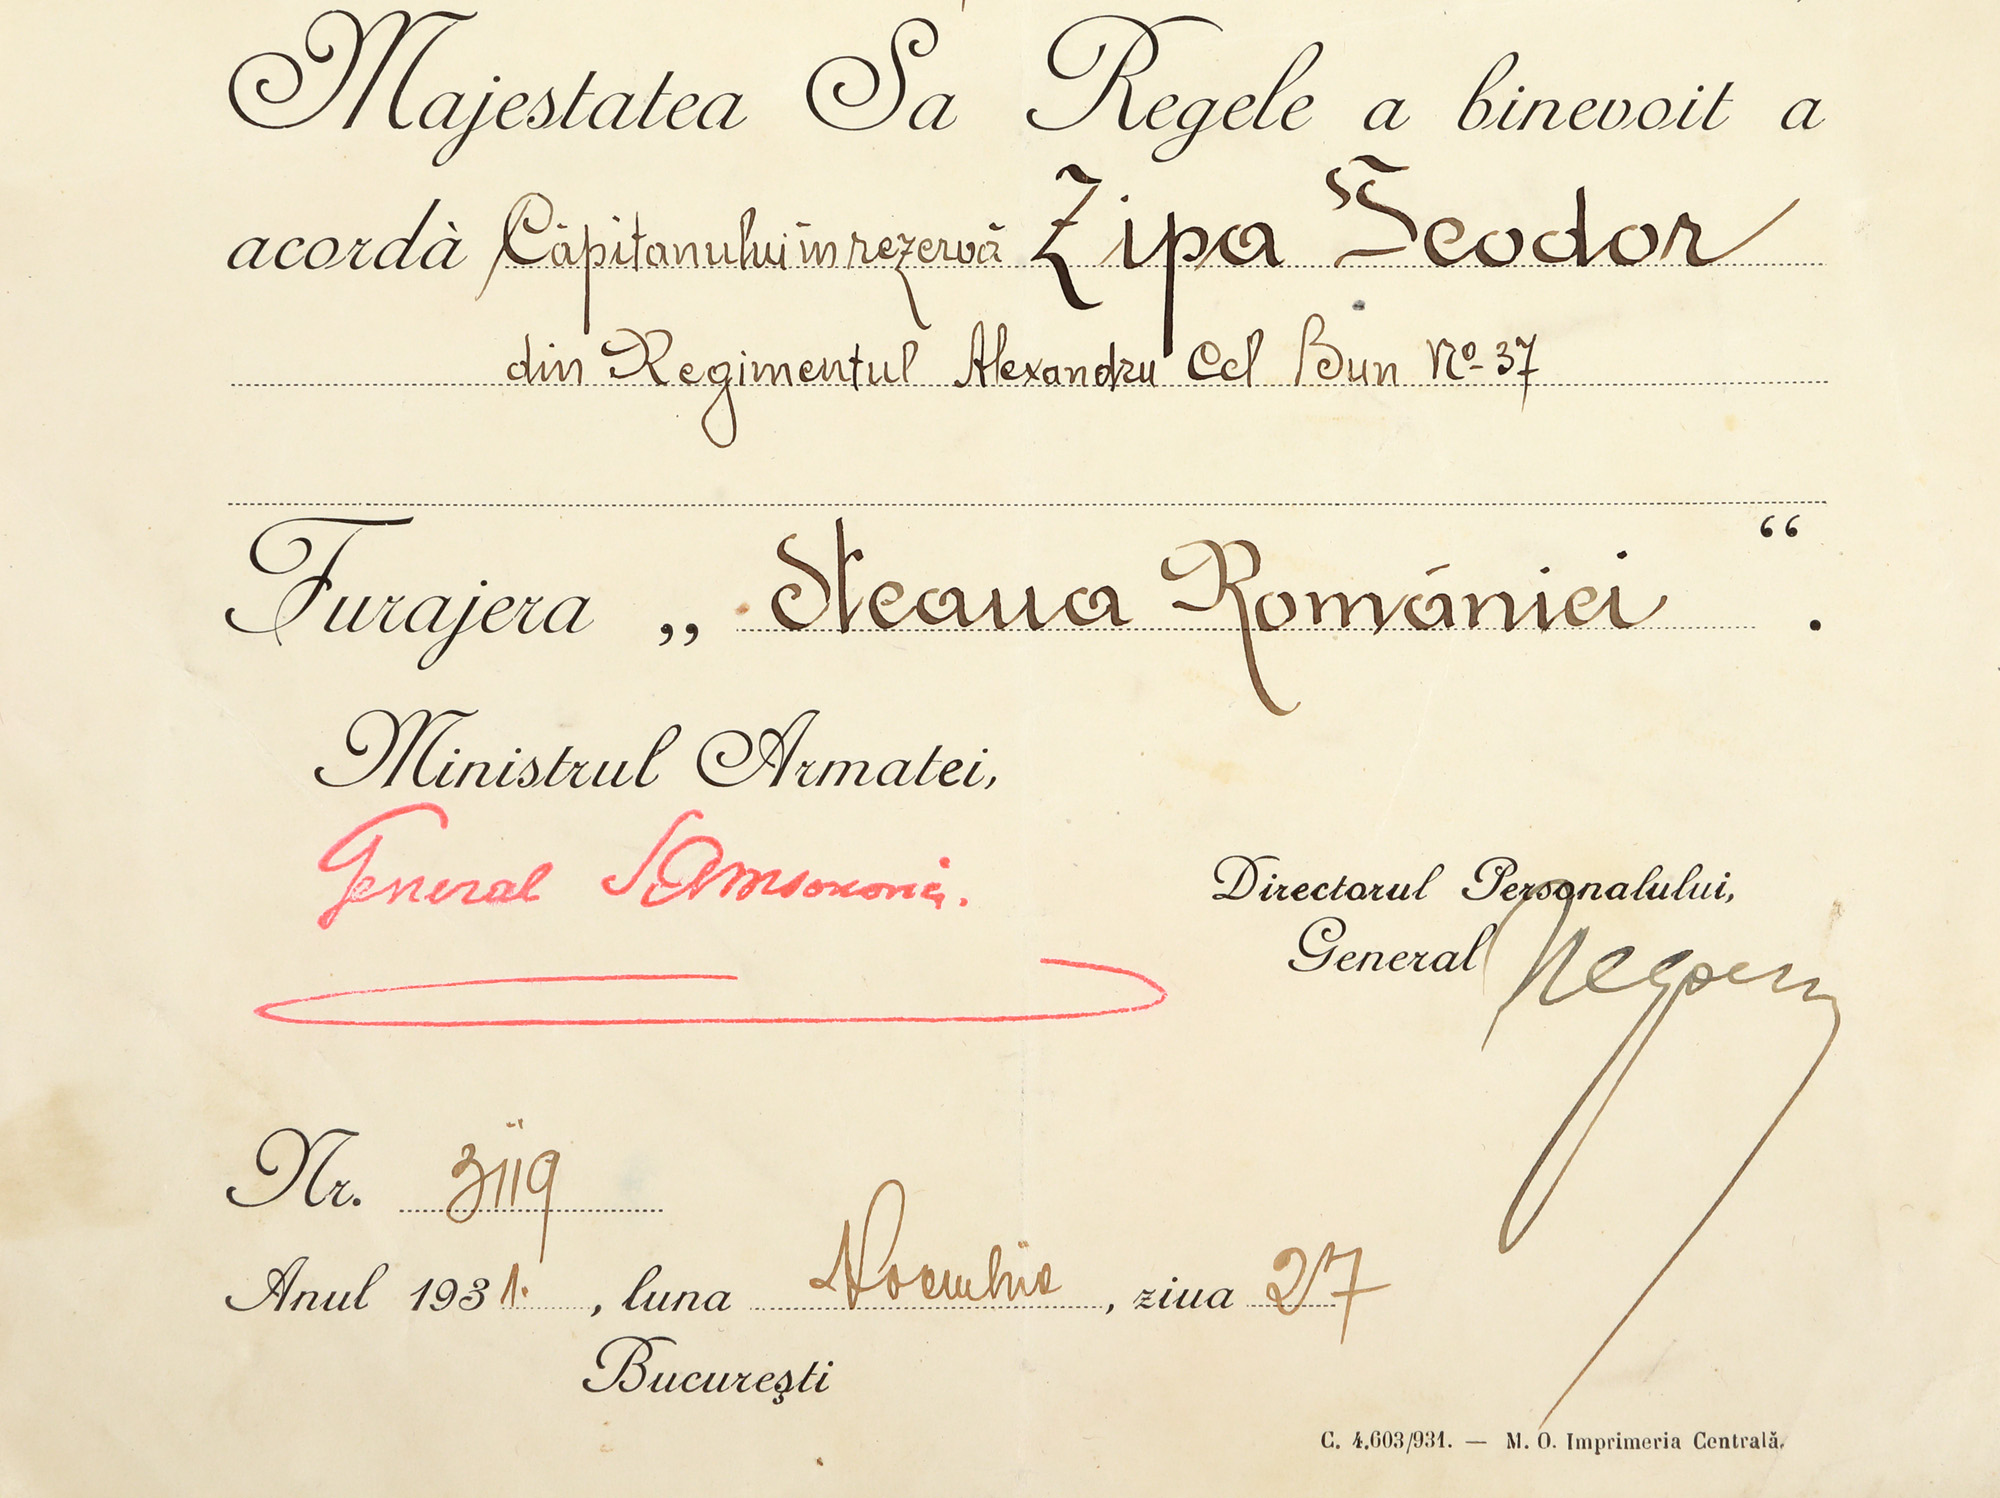 Majestatea Sa Regele a binevoit a
acordà Căpitanului în rezervă Zipa Teodor
din Regimentul Alexandru Cel Bun No 37
Furajera „ Steaua României “.
Ministrul Armatei,
General
Directorul Personalului,
General
Nr. 3119
Anul 1931. , luna Noembrie , ziua 27
Bucureşti
C. 4.603/931. — M. O. Imprimeria Centrală.